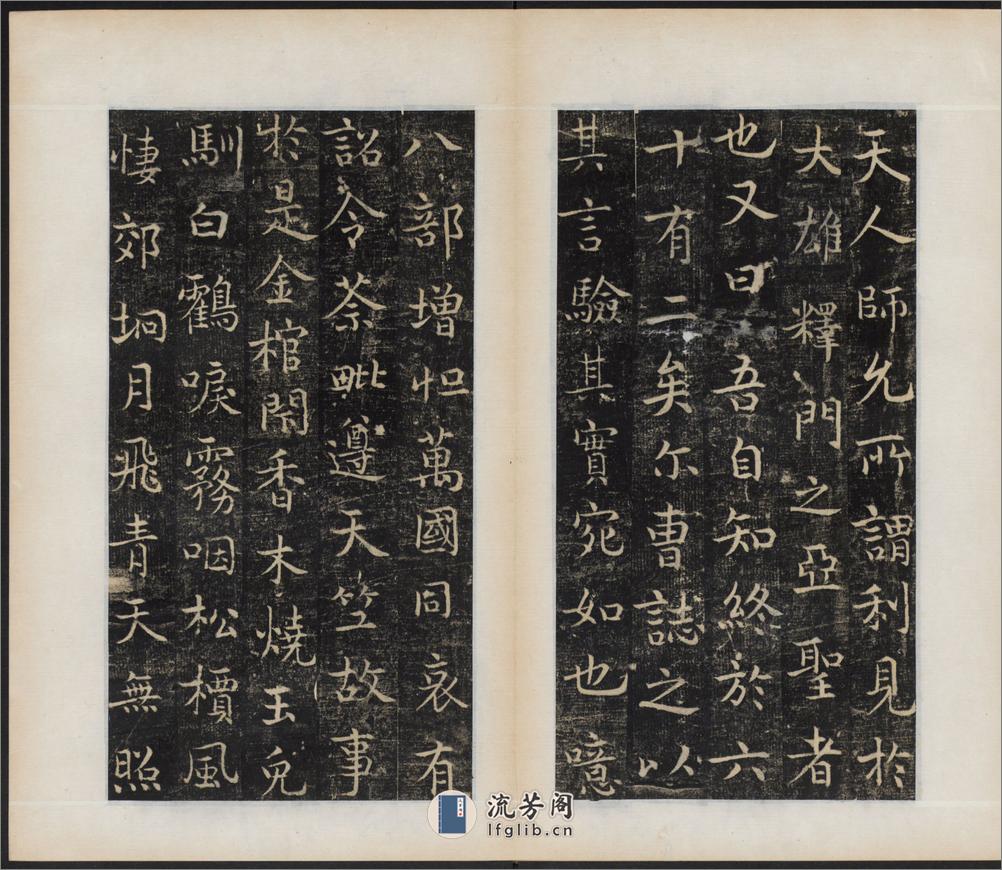 天人師允所謂利見於
大雄釋門之亞聖者
也又曰吾自知終於六
十有二矣尔曹誌之以
其言驗其實宛如也噫
八部增怛萬國同哀有
詔令荼毗遵天竺故事
於是金棺閇香木燒玉兔
馴白鸖唳霧咽松檟風
悽郊坰月飛青天無照
流芳阁
lfglib.cn